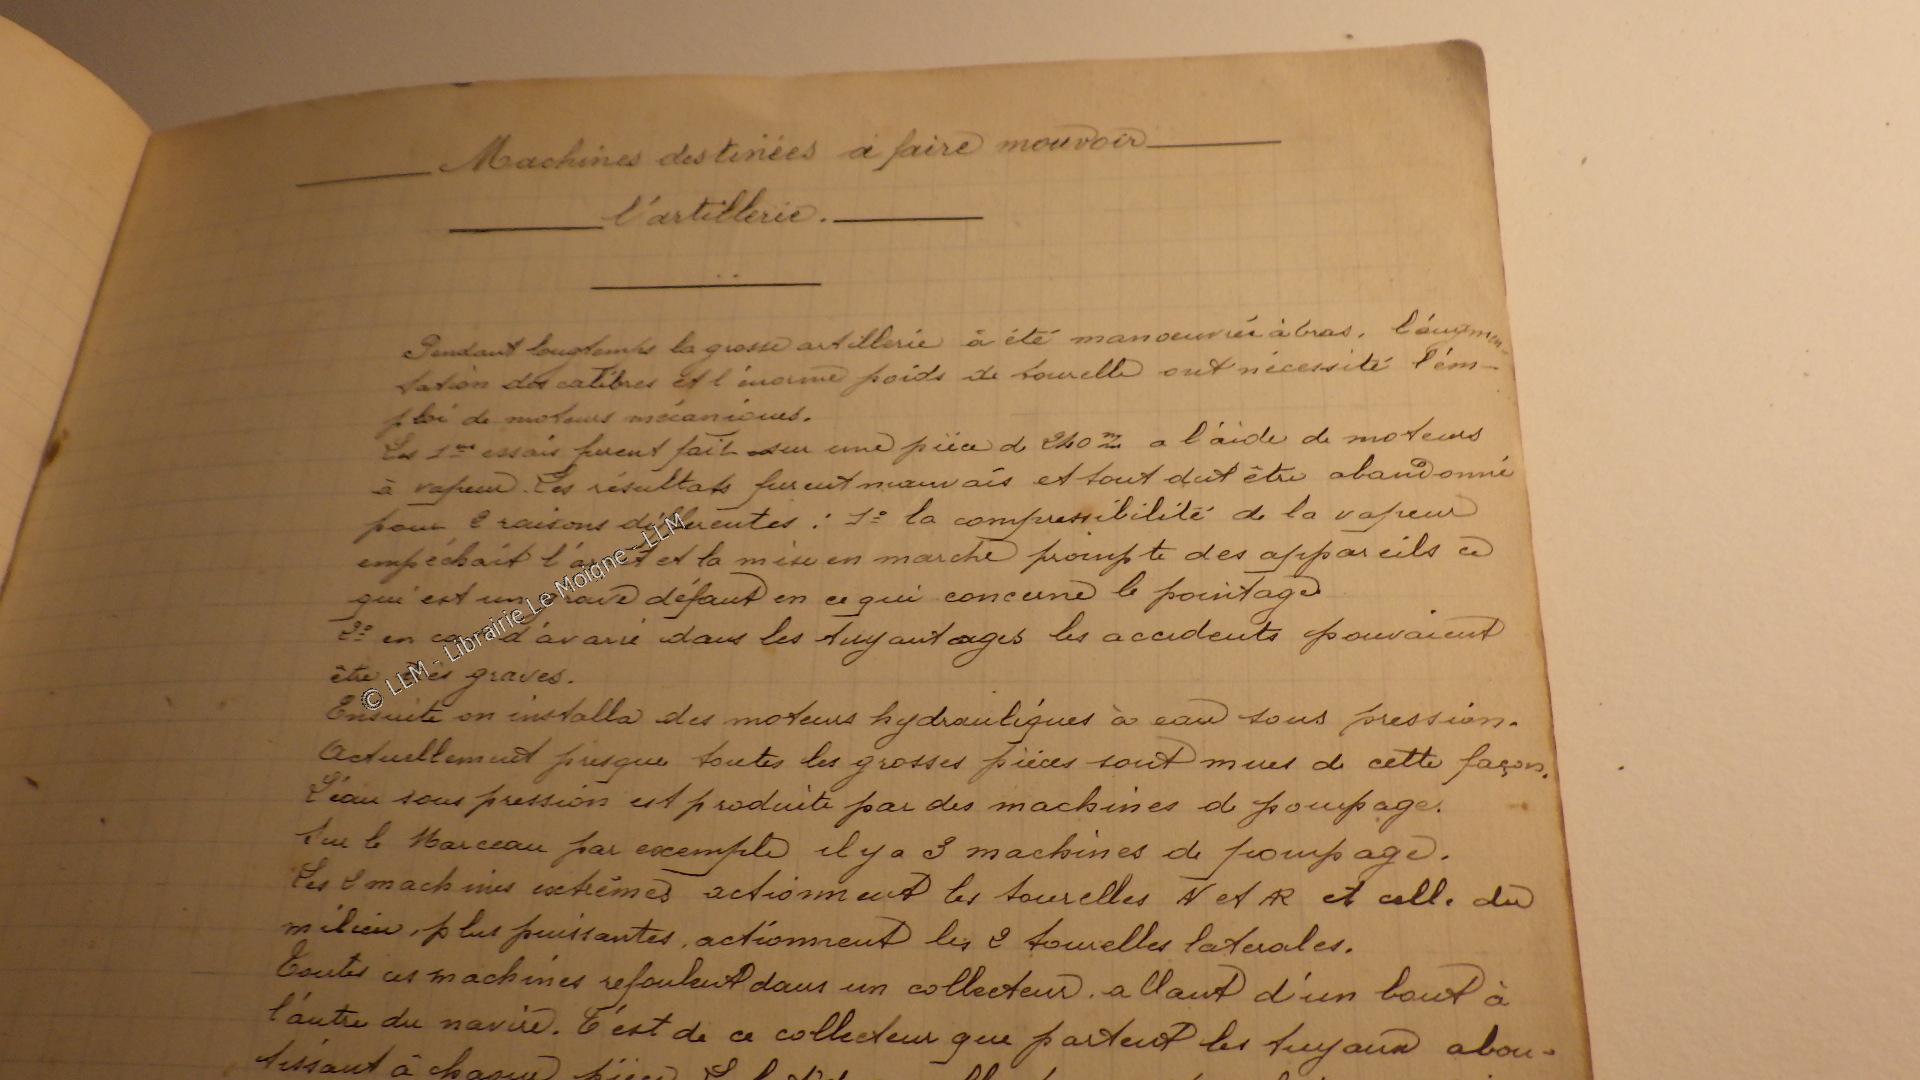 Machines destinées à faire mouvoir
l'artillerie.
Pendant longtemps la grosse artillerie à été manoeuvrée à bras. l'augmen-
tation des calibres et l'énorme poids de tourelle ont nécessité l'em-
ploi de moteurs mécaniques.
Les 1ers essais furent fait sur une pièce de 240 m/m a l'aide de moteurs
à vapeur. Les résultats furent mauvais et tout dut être abandonné
pour 2 raisons différentes : 1º la compressibilité de la vapeur
empéchait l'arrêt et la mise en marche prompte des appareils ce
qui est un grave défaut en ce qui concerne le pointage
2º en cas d'avarie dans les tuyautages les accidents pouvaient
être très graves.
Ensuite on installa des moteurs hydrauliques à eau sous pression.
Actuellement presque toutes les grosses pièces sont mues de cette façon.
L'eau sous pression est produite par des machines de pompage.
Sur le Marceau par exemple il y a 3 machines de pompage.
Les 2 machines extrêmes actionnent les tourelles N et AR et celle du
milieu, plus puissantes, actionnent les 2 tourelles laterales.
Toutes ces machines refoulent dans un collecteur allant d'un bout à
l'autre du navire. C'est de ce collecteur que partent les tuyaux abou-
tissant à chaque pièce
© LLM - Librairie Le Moigne - LLM